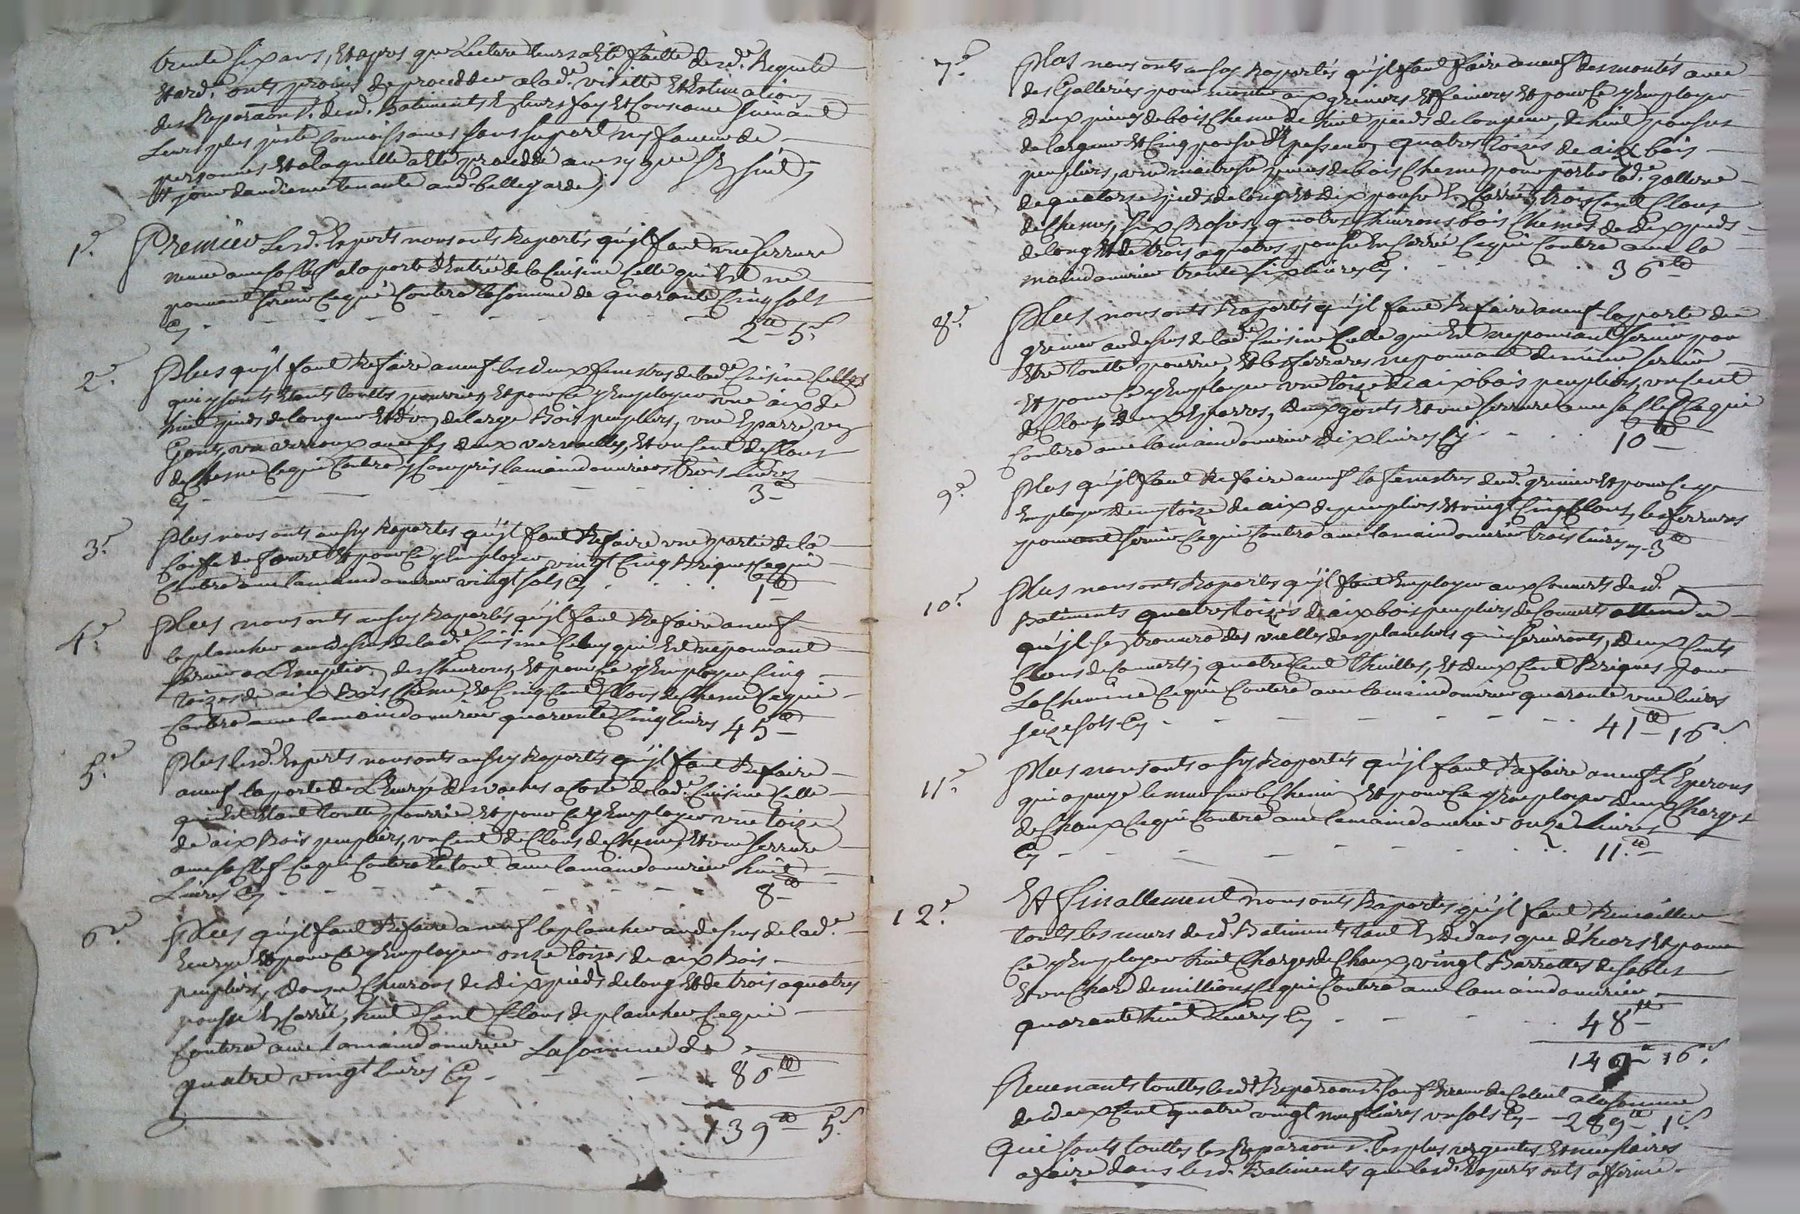 trente six ans, Et apres que Lecture leurs a Eté faitte desd. Requete
Et ard.e ont promis de proceder a lad.e visitte Et Estimations
des Reparaons. desd. Batiments En leurs foy Et Consiance suivant
Leurs plus juste Connoissances sans suport ny faveur de
personnes Et a laquelle a Eté procedé ainsy que sy suit,
Et jour dandierne tenante aud. bellegarde)
1.e Premier Lesd. Experts nous onts Raportés qu'jl faut une serrure
neuve avec sa Clef a la porte d'Entrée de la Cuisine Celle qui Est ne
pouvant servir Ce qui Contera la somme de quarante Cinq sols
Cy - - - 2 tt 5 s
2.e Plus qu'jl faut Refaire a neuf les deux fenestres de lad.e Cuisine Celles
qui y sonts Etants touttes pourries Et pour Ce y Employer une aix de
huit pieds de longeur Et d'un de large Bois peupliers, une Eparre, un
Gont, un verroux avec ses deux vervelles, Et un Cent de Clous
de Chesne Ce qui Contera y Compris la main d'ouvriers trois Livres
Cy - - - 3 tt
3.e Plus nous onts aussy Raportés qu'jl faut Refaire une partie de la
Coiffe du four Et pour Ce y Employer vingt Cinq Briques Ce qui
Contera avec la main d'ouvrier vingt sols Cy . . . 1 tt
4.e Plus nous onts aussy Raportés qu'jl faut Refaire a neuf
le plancher au dessus de lad.e Cuisine Celuy qui Est ne pouvant
servir a L'Exception des Cheurons, Et pour Ce y Employer Cinq
toizes de aix Bois Chene, Et Cinq Cent Clous de Chesne Ce qui
Contera avec la main d'ouvrier quarante Cinq livres 45 tt
5.e Plus lesd. Experts nous onts aussy Raportés qu'jl faut Refaire
a neuf la porte de L'Ecurye des vaches a Coté de lad.e Cuisine Celle
qui Est Etant toutte pourrie Et pour Ce y Employer une toize
de aix Bois peupliers, un Cent de Clous de Chesne, Et une serrure
avec sa Clef Ce qui Contera le tout avec la main d'ouvrier huit
Livres Cy - - - 8 tt
6.e Plus qu'jl faut Refaire a neuf le plancher au dessus de lad.e
Ecurye Et pour Ce y Employer onze toizes de aix Bois
peupliers, douze Cheurons de dix pieds de long Et de trois a quatres
pousse En Carrée, huit Cent Clous de plancher Ce qui
Contera avec la main d'ouvrier La somme de
quatre vingt livres Cy - - - 80 tt
139 tt 5 s
7.e Plus nous onts aussy Raportés qu'jl faut faire a neuf des montés avec
des Galleries pour monter aux greniers Et feniere Et pour Ce y Employer
deux pieces de bois Chesne de huit pieds de longeur, de huit pousses
de largeur Et Cinq pousse d'Epesseur, quatres toizes de aix bois
peupliers, une maitresse piece de bois Chesne pour porter lad.e gallerie
de quatorze pieds de long Et dix pousse En Carrée, trois Cent Clous
de Chesne, six Boses, quatres Cheurons bois Chesnes de dix pieds
de long Et de trois a quatres pousse En Carrée Ce qui Contera avec la
main d'ouvrier trente six livres Cy . . . 36 tt
8.e Plus nous onts Raportés qu'jl faut Refaire a neuf la porte du
grenier au dessus de lad.e Cuisine Celle qui Est ne pouvant servir pour
Etre toutte pourrie, Et les ferrures ne pouvant de meme servir
Et pour Ce y Employer une toize de aix bois peupliers, un Cent
de Clous, deux Eparres, deux gonts Et une serrure avec sa Clef Ce qui
Contera avec la main d'ouvrier dix livres Cy - . . 10 tt
9.e Plus qu'jl faut Refaire a neuf la fenestres dud. grenier Et pour Ce y
Employer demy toize de aix de peupliers Et vingt Cinq Clous, les ferrures
pouvant servir Ce qui Contera avec la main d'ouvrier trois livres Cy 3 tt
10.e Plus nous onts Raportés qu'jl faut Employer aux Couverts desd.
Batiments quatres toizes de aix bois peupliers de Couverts attendu
qu'jl se trouvera des vielles des planchers qui servironts, deux Cents
Clous de Couverts, quatre Cent thuilles, Et deux Cent Briques pour
La Cheminé Ce qui Contera avec la main d'ouvrier quarante une livres
seize sols Cy - - - 41 tt 16 s
11.e Plus nous onts aussy Raportés qu'jl faut Refaire a neuf L'Eperons
qui apuye le mur sur le Chemin Et pour Ce y Employer deux Charges
de Chaux Ce qui Contera avec la main d'ouvrier onze Livres
Cy - - - 11 tt
12.e Et finallement nous onts Raportés qu'jl faut Remailler
touts les murs desd. Batiments tant En Dedans que d'hiors Et pour
Ce y Employer huit Charges de Chaux, vingt Barrottes de sables
Et un Chard de millions Ce qui Contera avec la main d'ouvrier
quarante huit Livres Cy - - - 48 tt
149 tt 16 s
Revenants touttes lesd. Reparaons. sauf Erreur de Calcul a la somme
de deux Cent quatre vingt neuf livres un sols Cy - 289 tt 1 s
Qui sonts touttes les Reparaons. les plus urgentes Et necessaires
a faire dans lesd. Batiments que lesd. Experts onts affirmé